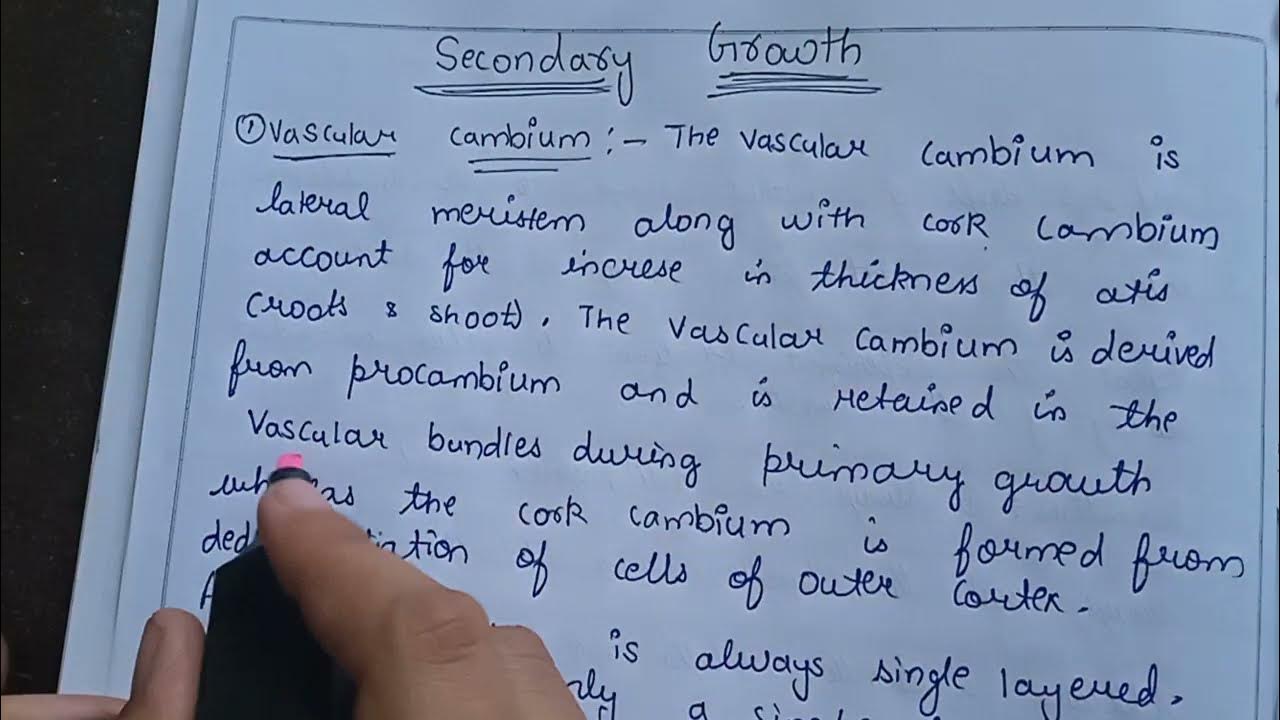 Secondary Growth
① Vascular cambium :- The vascular cambium is
lateral meristem along with cork cambium
account for increse in thickness of axis
(roots & shoot). The vascular cambium is derived
from procambium and is retained in the
Vascular bundles during primary growth
the cork cambium is formed from
of cells of outer cortex.
is always single layered.
a